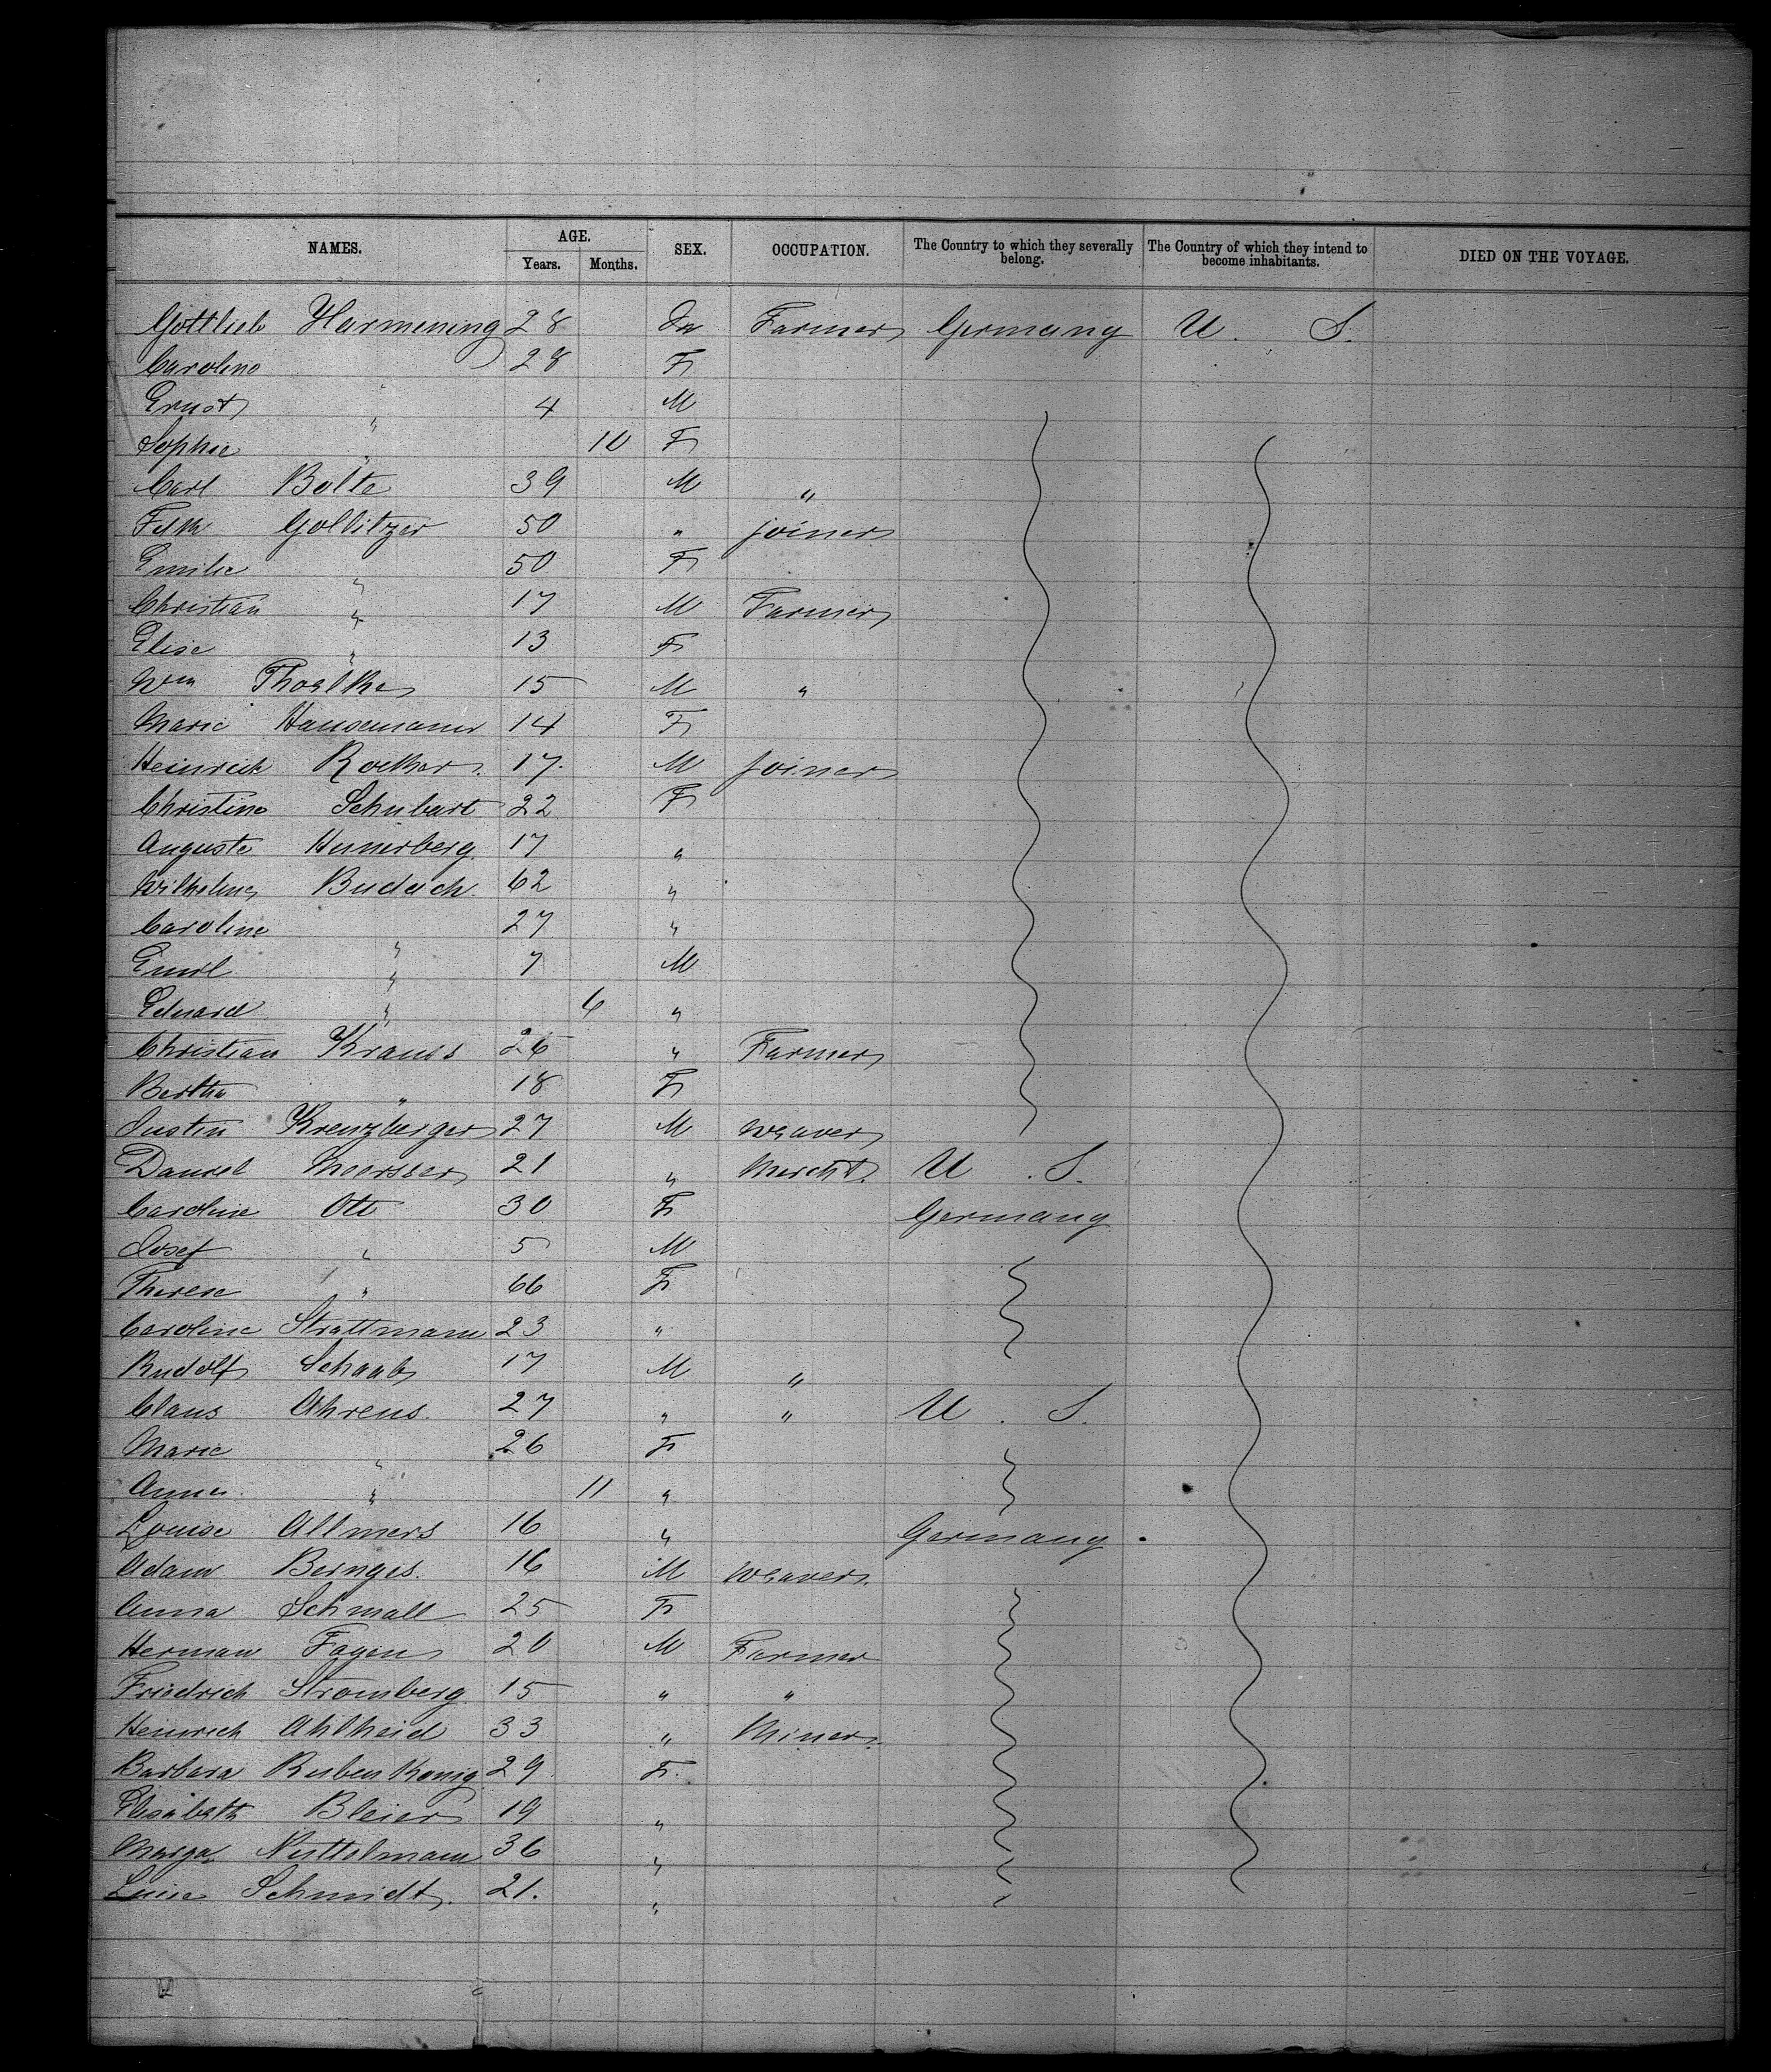 NAMES. AGE. SEX. OCCUPATION. The Country to which they severally belong. The Country of which they intend to become inhabitants. DIED ON THE VOYAGE.
Years. Months.
Gottlieb Harmening 28 Farmer Germany U. S.
Caroline 28 F
Ernst " 4 M
Sophie " 10 F
Carl Bolte 39 M "
Gollitzer 50 " joiner
Emilie " 50 F
Christian " 17 M Farmer
Elise " 13 F
Wm Thoelke 15 M "
Marie Hansemann 14 F
Heinrich Roelker 17 M joiner
Christine Schubart 22 F
Auguste Hunerberg 17 "
Wilhelm Budach 62 "
Caroline " 27 "
Emil " 7 M
Eduard " 6 "
Christian Krauss 26 " Farmer
Bertha " 18 F
Justin Kreuzberger 27 M weaver
Daniel 21 " Mercht. U S.
Caroline Ott 30 F Germany
Josef " 5 M
Therese " 66 F
Caroline Strattmann 23 "
Rudolf Schaab 17 M "
Claus Ahrens 27 " " U. S.
Marie " 26 F
Anna " 11 "
Louise Allmers 16 " Germany
Adam Bernges. 16 M weaver
Anna Schmall 25 F
Herman Fagen 20 M Farmer
Friedrich Stromberg 15 " "
Heinrich Ahlheid 33 " Miner
Barbara Rubenkonig 29 F.
Elisabeth Bleier 19 "
Marga. Nuttelmann 36 "
Luise Schmidt. 21. "